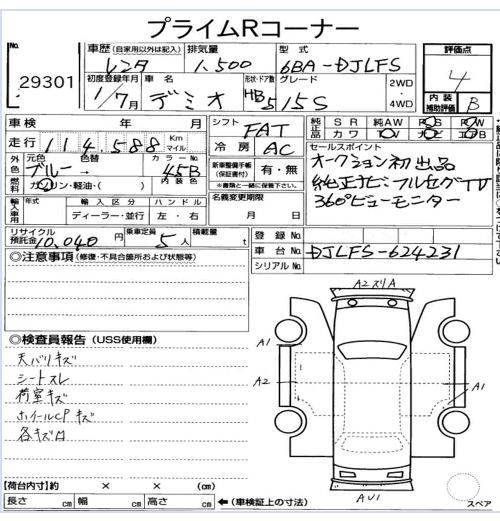 プライムRコーナー
No. 29301
車歴 (自家用以外は記入) レンタ
排気量 1,500
型式 6BA-DJLFS
評価点 4
内装補助評価 B
初度登録年月 1/7月
車名 デミオ
形状・ドア数 HB 5
グレード 15S
2WD ・ 4WD
車検 年 月
シフト FAT
純正品 SR PS 純正AW PW カワ TV ナビ エアB
走行 114,588 Km マイル
冷房 AC
セールスポイント
オークション初出品
純正ナビフルセグTV
360°ビューモニター
外色 元色 ブルー 色替 → カラーNo. 45B
燃料 ガソリン・軽油・( ) 内装色
新車整備手帳(保証書付) 有・無
※書類と一緒に保管下さい。
輸入車用 年式 輸入区分 ディーラー・並行 ハンドル 左・右
名義変更期限 月 日
リサイクル預託金 10,040円
乗車定員 5人
積載量 t
登録No.
車台No. DJLFS-624231
シリアルNo.
◎注意事項 (修復・不具合箇所および状態等)
◎検査員報告 (USS使用欄)
天バリキズ
シートスレ
荷室キズ
ホイールCPキズ
各キズ凹
A2スリA
A1
A1
A2
A1
AU1
スペア
【荷台内寸】約 × × (cm)
長さ cm 幅 cm 高さ cm ←(車検証上の寸法)